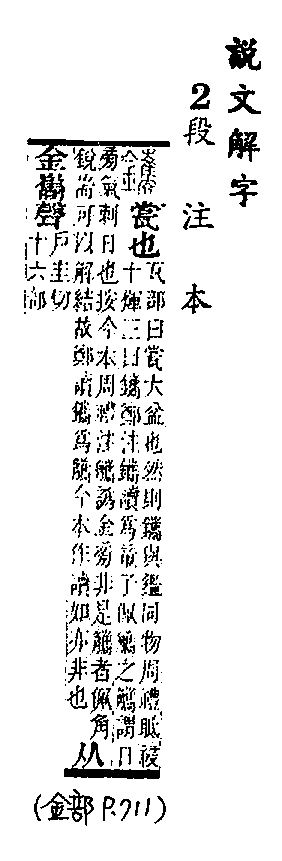 說文解字
2段注本
瓽也
瓦部曰瓽大盆也然則鑴與鑑同物周禮眡祲
十煇三曰鑴鄭注鑴讀爲童子佩觿之觿謂日
旁氣刺日也按今本周禮注觿譌金旁非是觿者佩角
銳耑可以解結故鄭讀鑴爲觿今本作讀如亦非也
从
金巂聲
戶圭切
十六部
(金部 P.711)